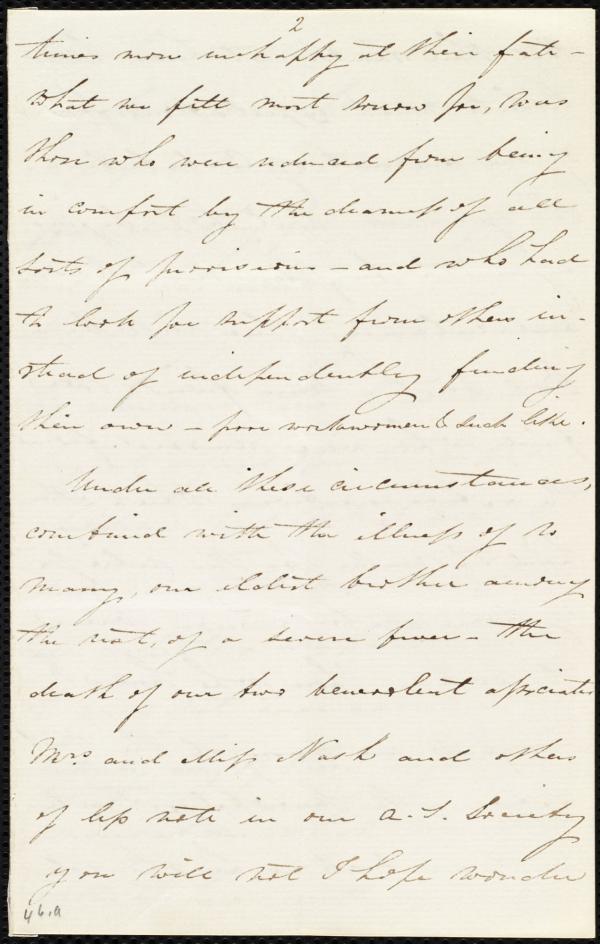 2
times more unhappy at their fate -
What we felt most sorrow for, was
those who were reduced from being
in comfort by the dearness of all
sorts of provisions - and who had
to look for support from others in-
stead of independently finding
their own - poor workwomen & such like.
Under all these circumstances,
combined with the illness of so
many, our eldest brother among
the rest, of a severe fever - the
death of our two benevolent associates
Mrs. and Miss Nash and others
of less note in our A. S. Society
you will not I hope wonder
46.a